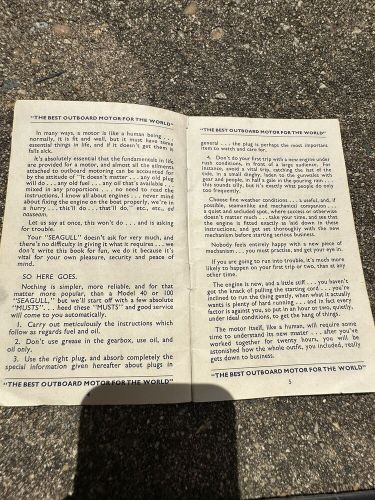 "THE BEST OUTBOARD MOTOR FOR THE WORLD"
In many ways, a motor is like a human being . . .
normally, it is fit and well, but it must have some
essential things in life, and if it doesn't get them it
falls sick.
It's absolutely essential that the fundamentals in life
are provided for a motor, and almost all the ailments
attached to outboard motoring can be accounted for
by the attitude of "It doesn't matter" . . . any old plug
will do . . . any old fuel . . . any oil that's available . . .
mixed in any proportions . . . no need to read the
instructions. I know all about engines . . . never mind
about fixing the engine on the boat properly, we're in
a hurry . . . this'll do . . . that'll do," etc., etc., ad
nauseam.
Let us say at once, this won't do . . . and is asking
for trouble.
Your "SEAGULL" doesn't ask for very much, and
there's no difficulty in giving it what it requires . . . we
don't write this book for fun, we do it because it's
vital for your own pleasure, security and peace of
mind.
SO HERE GOES.
Nothing is simpler, more reliable, and for that
matter more popular, than a Model 40 or 100
"SEAGULL," but we'll start off with a few absolute
"MUSTS" . . . heed these "MUSTS" and good service
will come to you automatically.
1. Carry out meticulously the instructions which
follow as regards fuel and oil.
2. Don't use grease in the gearbox, use oil, and
oil only.
3. Use the right plug, and absorb completely the
special information given hereafter about plugs in
"THE BEST OUTBOARD MOTOR FOR THE WORLD"
"THE BEST OUTBOARD MOTOR FOR THE WORLD"
general . . . the plug is perhaps the most important
item to watch and care for.
4. Don't do your first trip with a new engine under
rush conditions, in front of a large audience. For
instance, avoid a vital trip, catching the last of the
tide, in a small dinghy, laden to the gunwales with
gear and people, in half a gale in the pouring rain . . .
this sounds silly, but it's exactly what people do only
too frequently.
Choose fine weather conditions . . . a useful, and, if
possible, seamanlike and mechanical companion . . .
a quiet and secluded spot, where success or otherwise
doesn't matter much . . . take your time, and see that
the engine is fitted exactly as laid down in these
instructions, and get set thoroughly with the new
mechanism before starting serious business.
Nobody feels entirely happy with a new piece of
mechanism . . . you must practise, and get your eye in.
If you are going to run into trouble, it's much more
likely to happen on your first trip or two, than at any
other time.
The engine is new, and a little stiff . . . you haven't
got the knack of pulling the starting cord . . . you're
inclined to run the thing gently, when what it actually
wants is plenty of hard running . . . and in fact every
factor is against you, so put in an hour or two, quietly,
under ideal conditions, to get the hang of things.
The motor itself, like a human, will require some
time to understand its new master . . . after you've
worked together for twenty hours, you will be
astonished how the whole outfit, you included, really
gets down to business.
"THE BEST OUTBOARD MOTOR FOR THE WORLD"
5